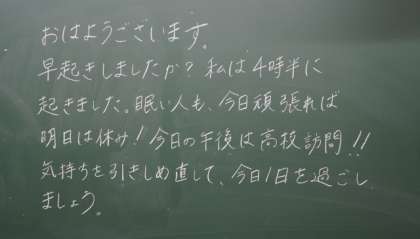 おはようございます。
早起きしましたか？私は4時半に
起きました。眠い人も、今日頑張れば
明日は休み！今日の午後は高校訪問!!
気持ちを引きしめ直して、今日1日を過ごし
ましょう。